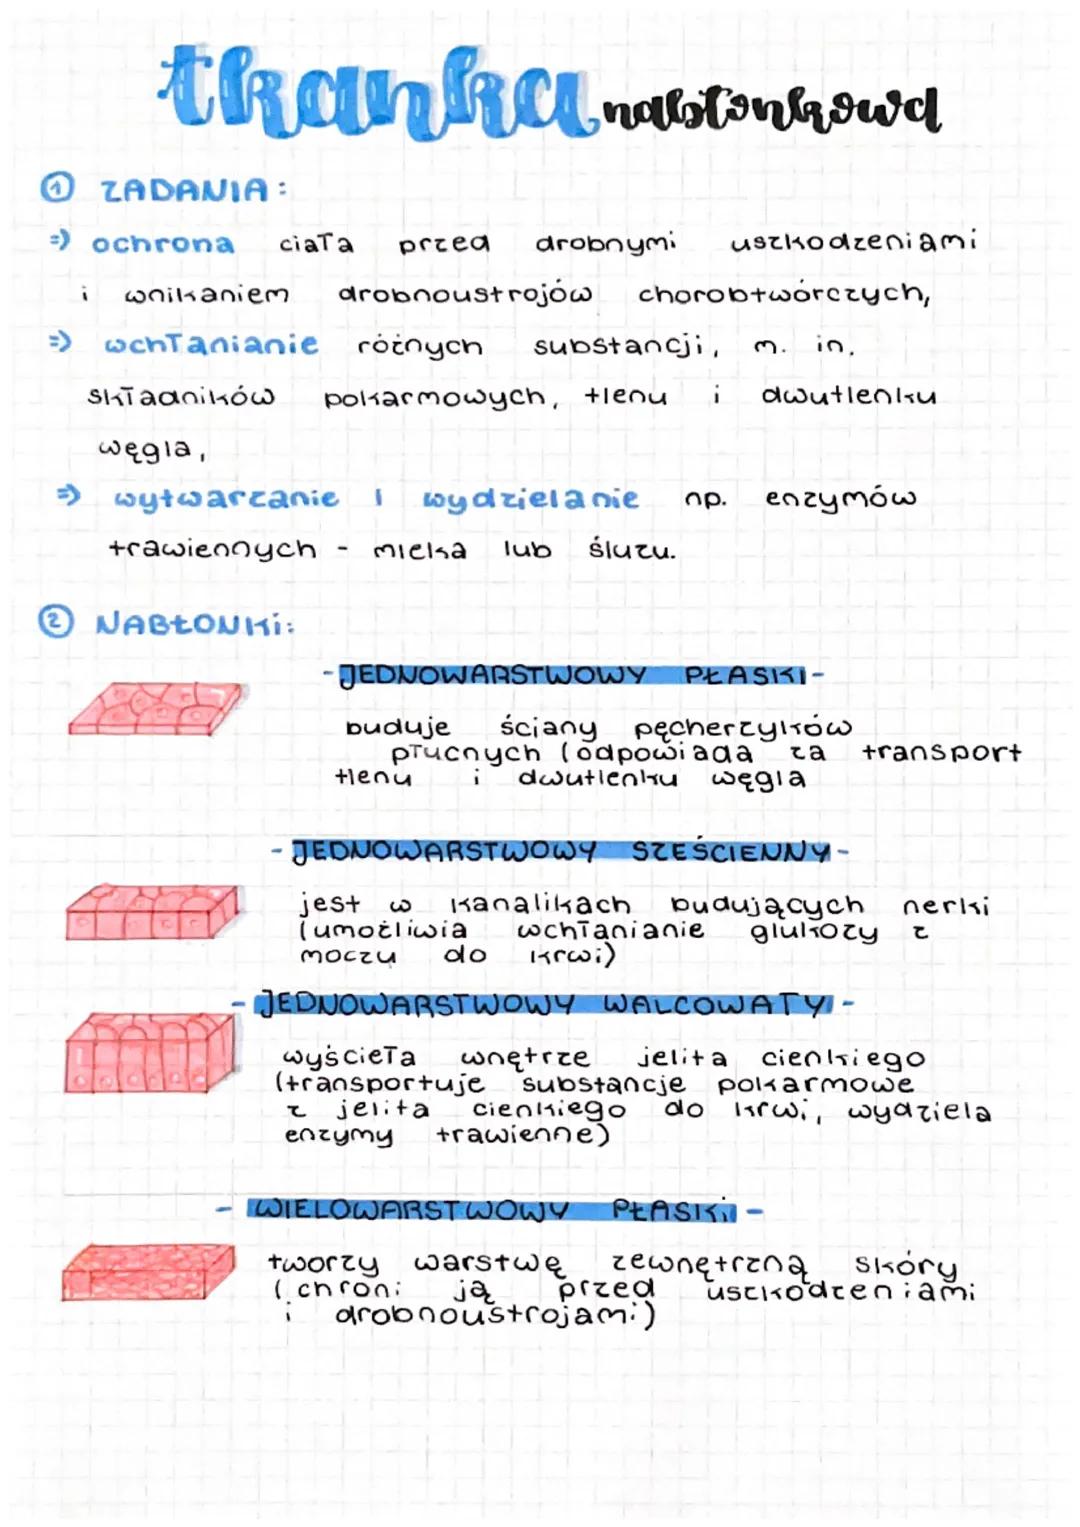 tkanka nabłonkowa
① ZADANIA:
=> ochrona ciała przed drobnymi uszkodzeniami
i wnikaniem drobnoustrojów chorobtwórczych,
=> wchłanianie różnych substancji, m. in.
składników pokarmowych, tlenu i dwutlenku
węgla,
=> wytwarzanie i wydzielanie np. enzymów
trawiennych - mleka lub śluzu.
② NABŁONKi:
-JEDNOWARSTWOWY PŁASKI-
buduje ściany pęcherzyków
płucnych (odpowiada za transport
tlenu i dwutlenku węgla
-JEDNOWARSTWOWY SZEŚCIENNY-
jest w kanalikach budujących nerki
(umożliwia wchłanianie glukozy z
moczu do krwi)
-JEDNOWARSTWOWY WALCOWATY-
wyścieła wnętrze jelita cienkiego
(transportuje substancje pokarmowe
z jelita cienkiego do krwi, wydziela
enzymy trawienne)
-WIELOWARSTWOWY PŁASKi-
tworzy warstwę zewnętrzną skóry
(chroni ją przed uszkodzeniami
i drobnoustrojami)